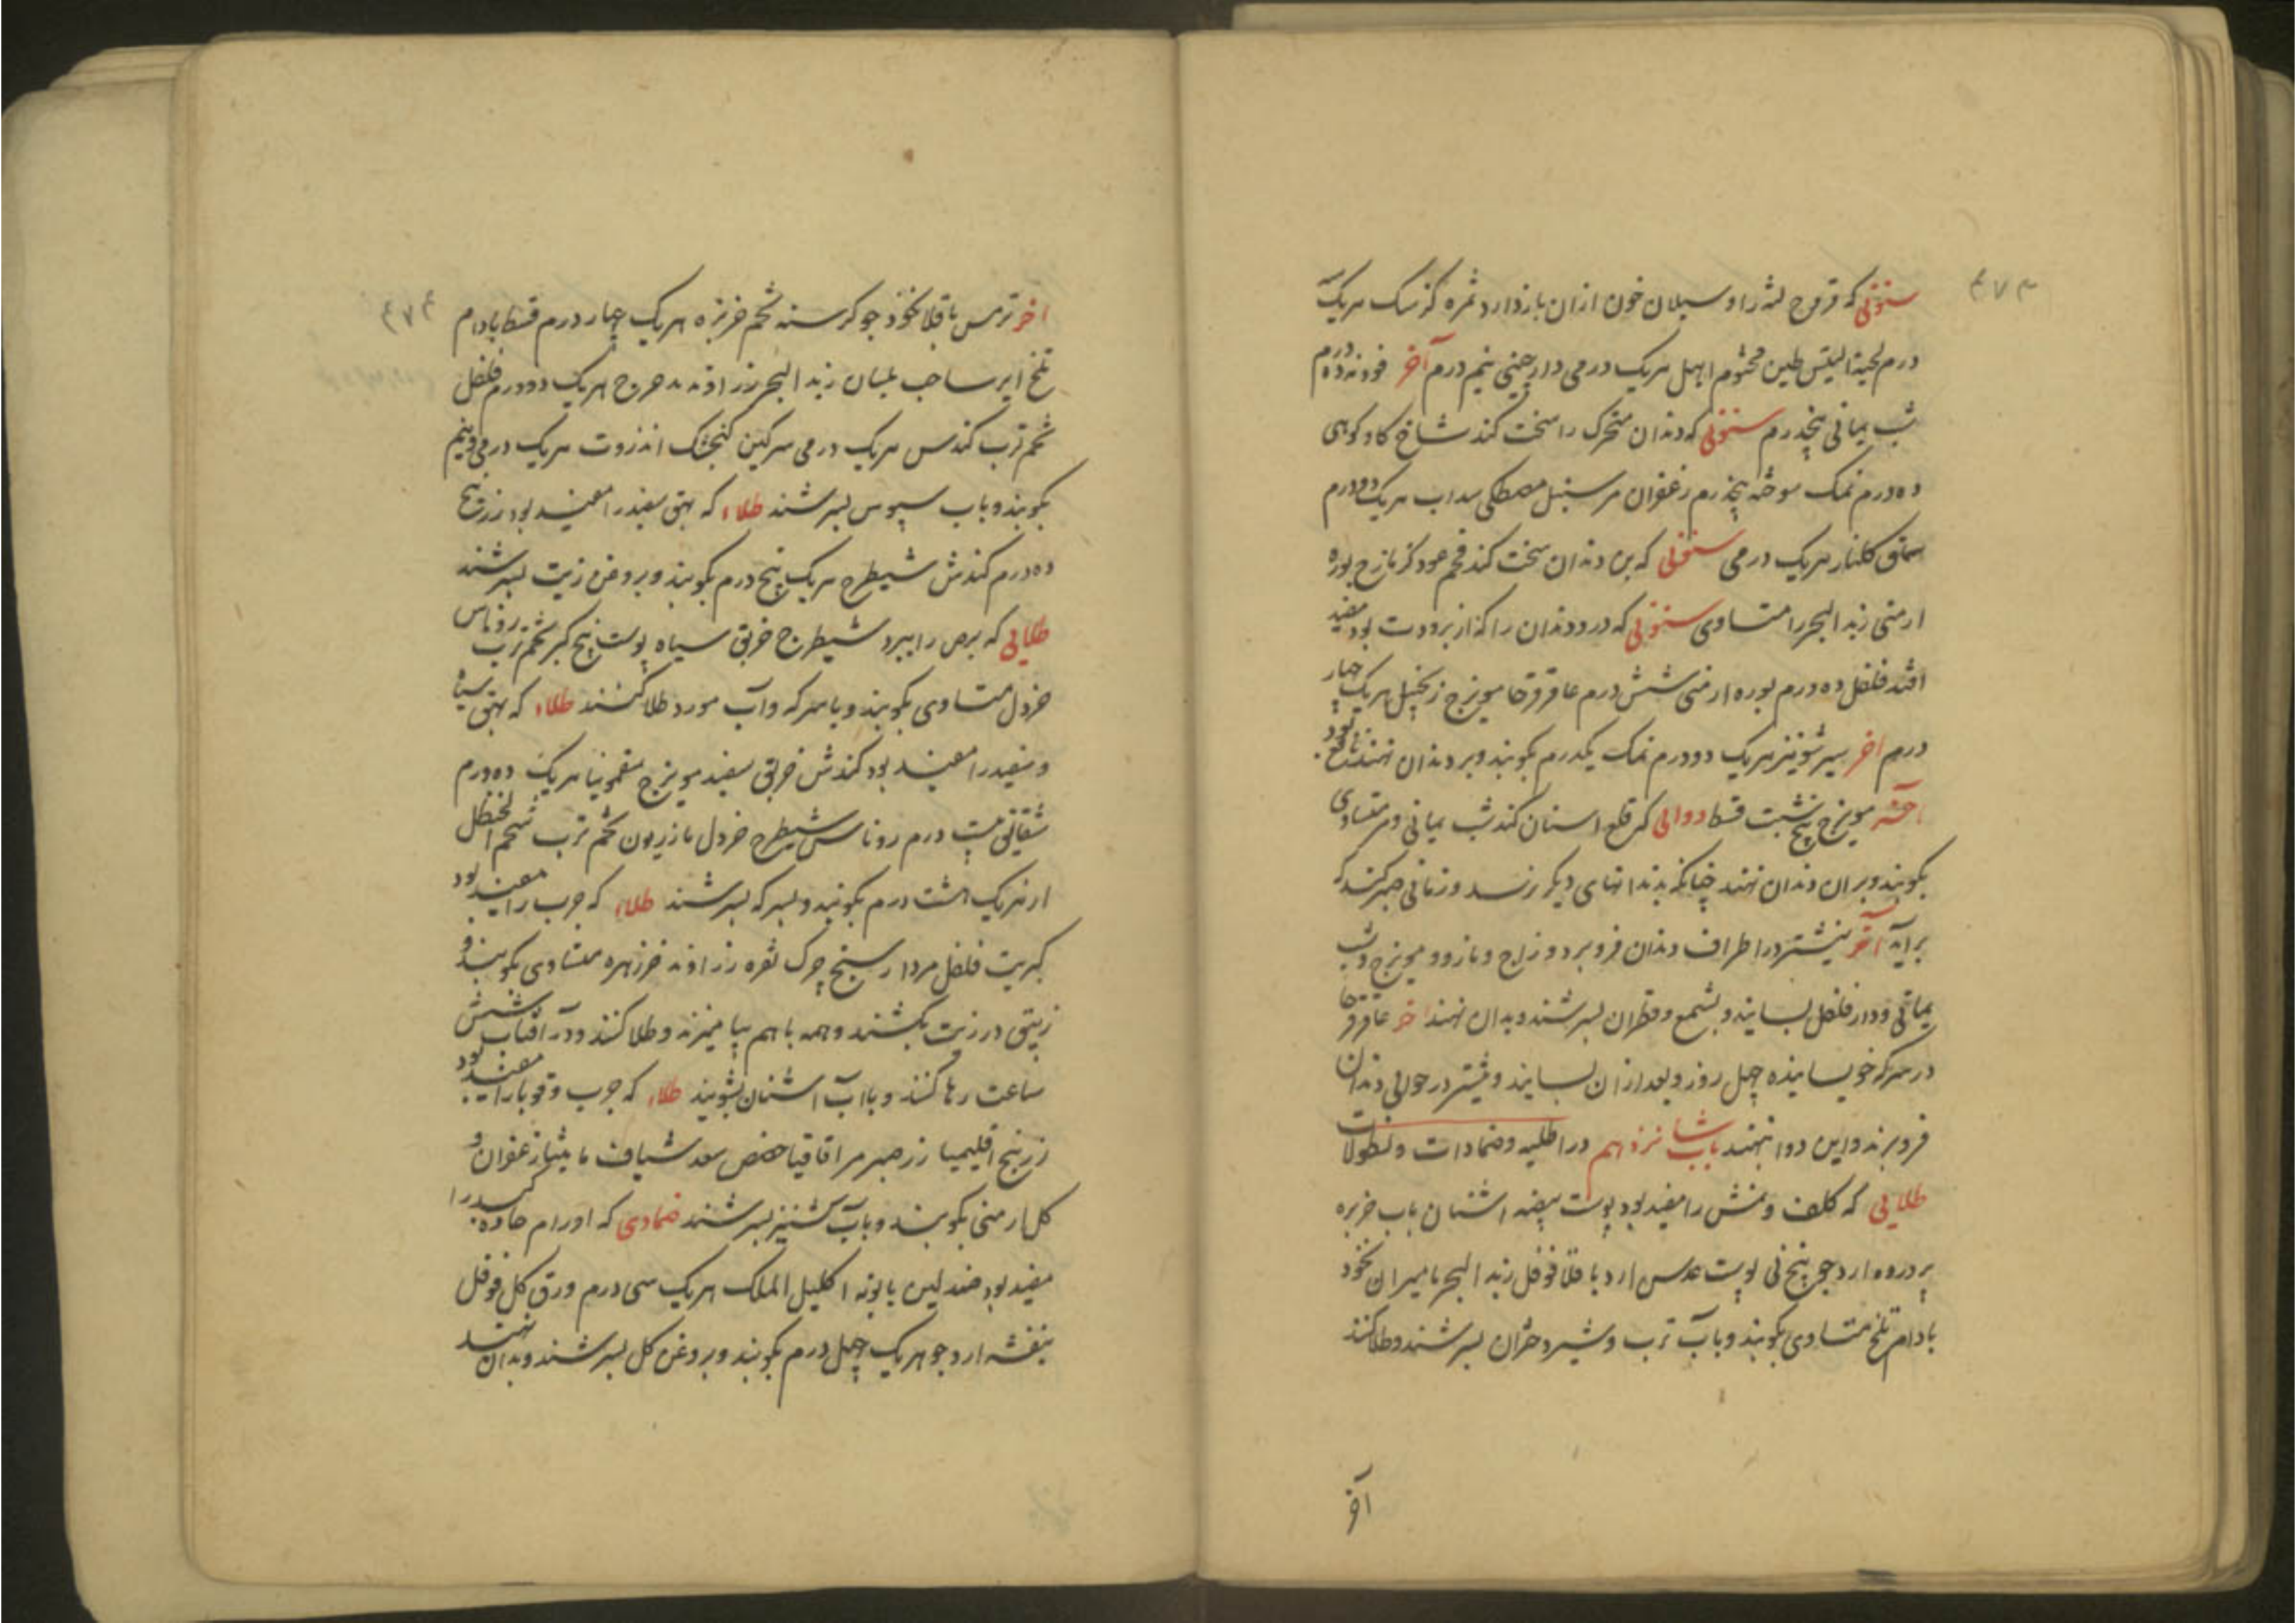 ۴۷۳
سنونی که قروح لثه را و سیلان خون ازان بازدارد ثمره کزمک هریک
درم لحیة التیس طین مختوم ابهل هریک درمی دارچینی نیم درم آخر فودنه ده درم
شب یمانی پنجدرم سنونی که دندان متحرک را سخت کند شاخ کاو کوهی
ده درم نمک سوخته پنجدرم زعفران مر سنبل مصطکی سداب هریک دودرم
سماق کلنار هریک درمی سنونی که بن دندان سخت کند فحم عود کزمازج بوره
ارمنی زبد البحر متساوی سنونی که درد دندان را که از برودت بود مفید
افتد فلفل ده درم بوره ارمنی شش درم عاقرقرحا مویزج زنجبیل هریک چهار
درم اخر سیر شونیز هریک دودرم نمک یکدرم بکوبند و بر دندان نهند نافع بود
آخر مویزج پنج شبت قسط دوائی که قلع اسنان کند شب یمانی و مر متساوی
بکوبند و بران دندان نهند چنانکه بدندانهای دیکر نرسد و زمانی صبر کنند که
برآید آخر نیشتر در اطراف دندان فرو برد و زاج و مازو و مویزج و شب
یمانی و دارفلفل بسایند و بشمع و قطران بسرشند و بدان نهند اخر عاقرقرحا
در سرکه خویسانیده چهل روز و بعد ازان بسایند و نیشتر در حوالی دندان
فرو برند و این دوا بنهند باب شانزدهم در اطلیه و ضمادات و نطولات
طلایی که کلف و نمش را مفید بود پوست بیضه اشنان باب خربزه
پرورده ارد جو بیخ نی پوست عدس ارد باقلا فوفل زبد البحر مامیران نخود
بادام تلخ متساوی بکوبند و بآب ترب و شیر دختران بسرشند و طلا کنند
آخر
۴۷۴
اخر ترمس باقلا نخود جو کرسنه تخم خربزه هریک چهار درم قسط بادام
تلخ ایرسا حب بلسان زبد البحر زراوند مدحرج هریک دودرم فلفل
تخم ترب کندس هریک درمی سرکین کنجشک انزروت هریک درمی و نیم
بکوبند و باب سپوس بسرشند طلاء که بهق سفید را مفید بود زرنیخ
ده درم کندش شیطرج هریک پنج درم بکوبند و بروغن زیت بسرشند
طلایی که برص را ببرد شیطرج خربق سیاه پوست بیخ کبر تخم ترب روناس
خردل متساوی بکوبند و باسرکه و آب مورد طلا کنند طلاء که بهق سیاه
و سفید را مفید بود کندش خربق سفید مویزج سقمونیا هریک ده درم
شقایق بیست درم روناس شیطرج خردل مازریون تخم ترب شحم الحنظل
از هریک هشت درم بکوبند و بسرکه بسرشند طلاء که جرب را مفید بود
کبریت فلفل مردارسنج چرک نقره زراوند خرزهره متساوی بکوبند و
زیبق در زیت بکشند و همه باهم بیامیزند و طلا کنند و در آفتاب شش
ساعت رها کنند و باآب اشنان بشویند طلاء که جرب و قوبا را مفید بود
زرنیخ اقلیمیا زر صبر مر اقاقیا حضض سعد شیاف مامیثا زعفران و
کل ارمنی بکوبند و بآب کشنیز بسرشند ضمادی که اورام حاده کبد را
مفید بود صندلین بابونه اکلیل الملک هریک سی درم ورق کل فوفل
بنفشه ارد جو هریک چهل درم بکوبند و بروغن کل بسرشند و بدان نهند